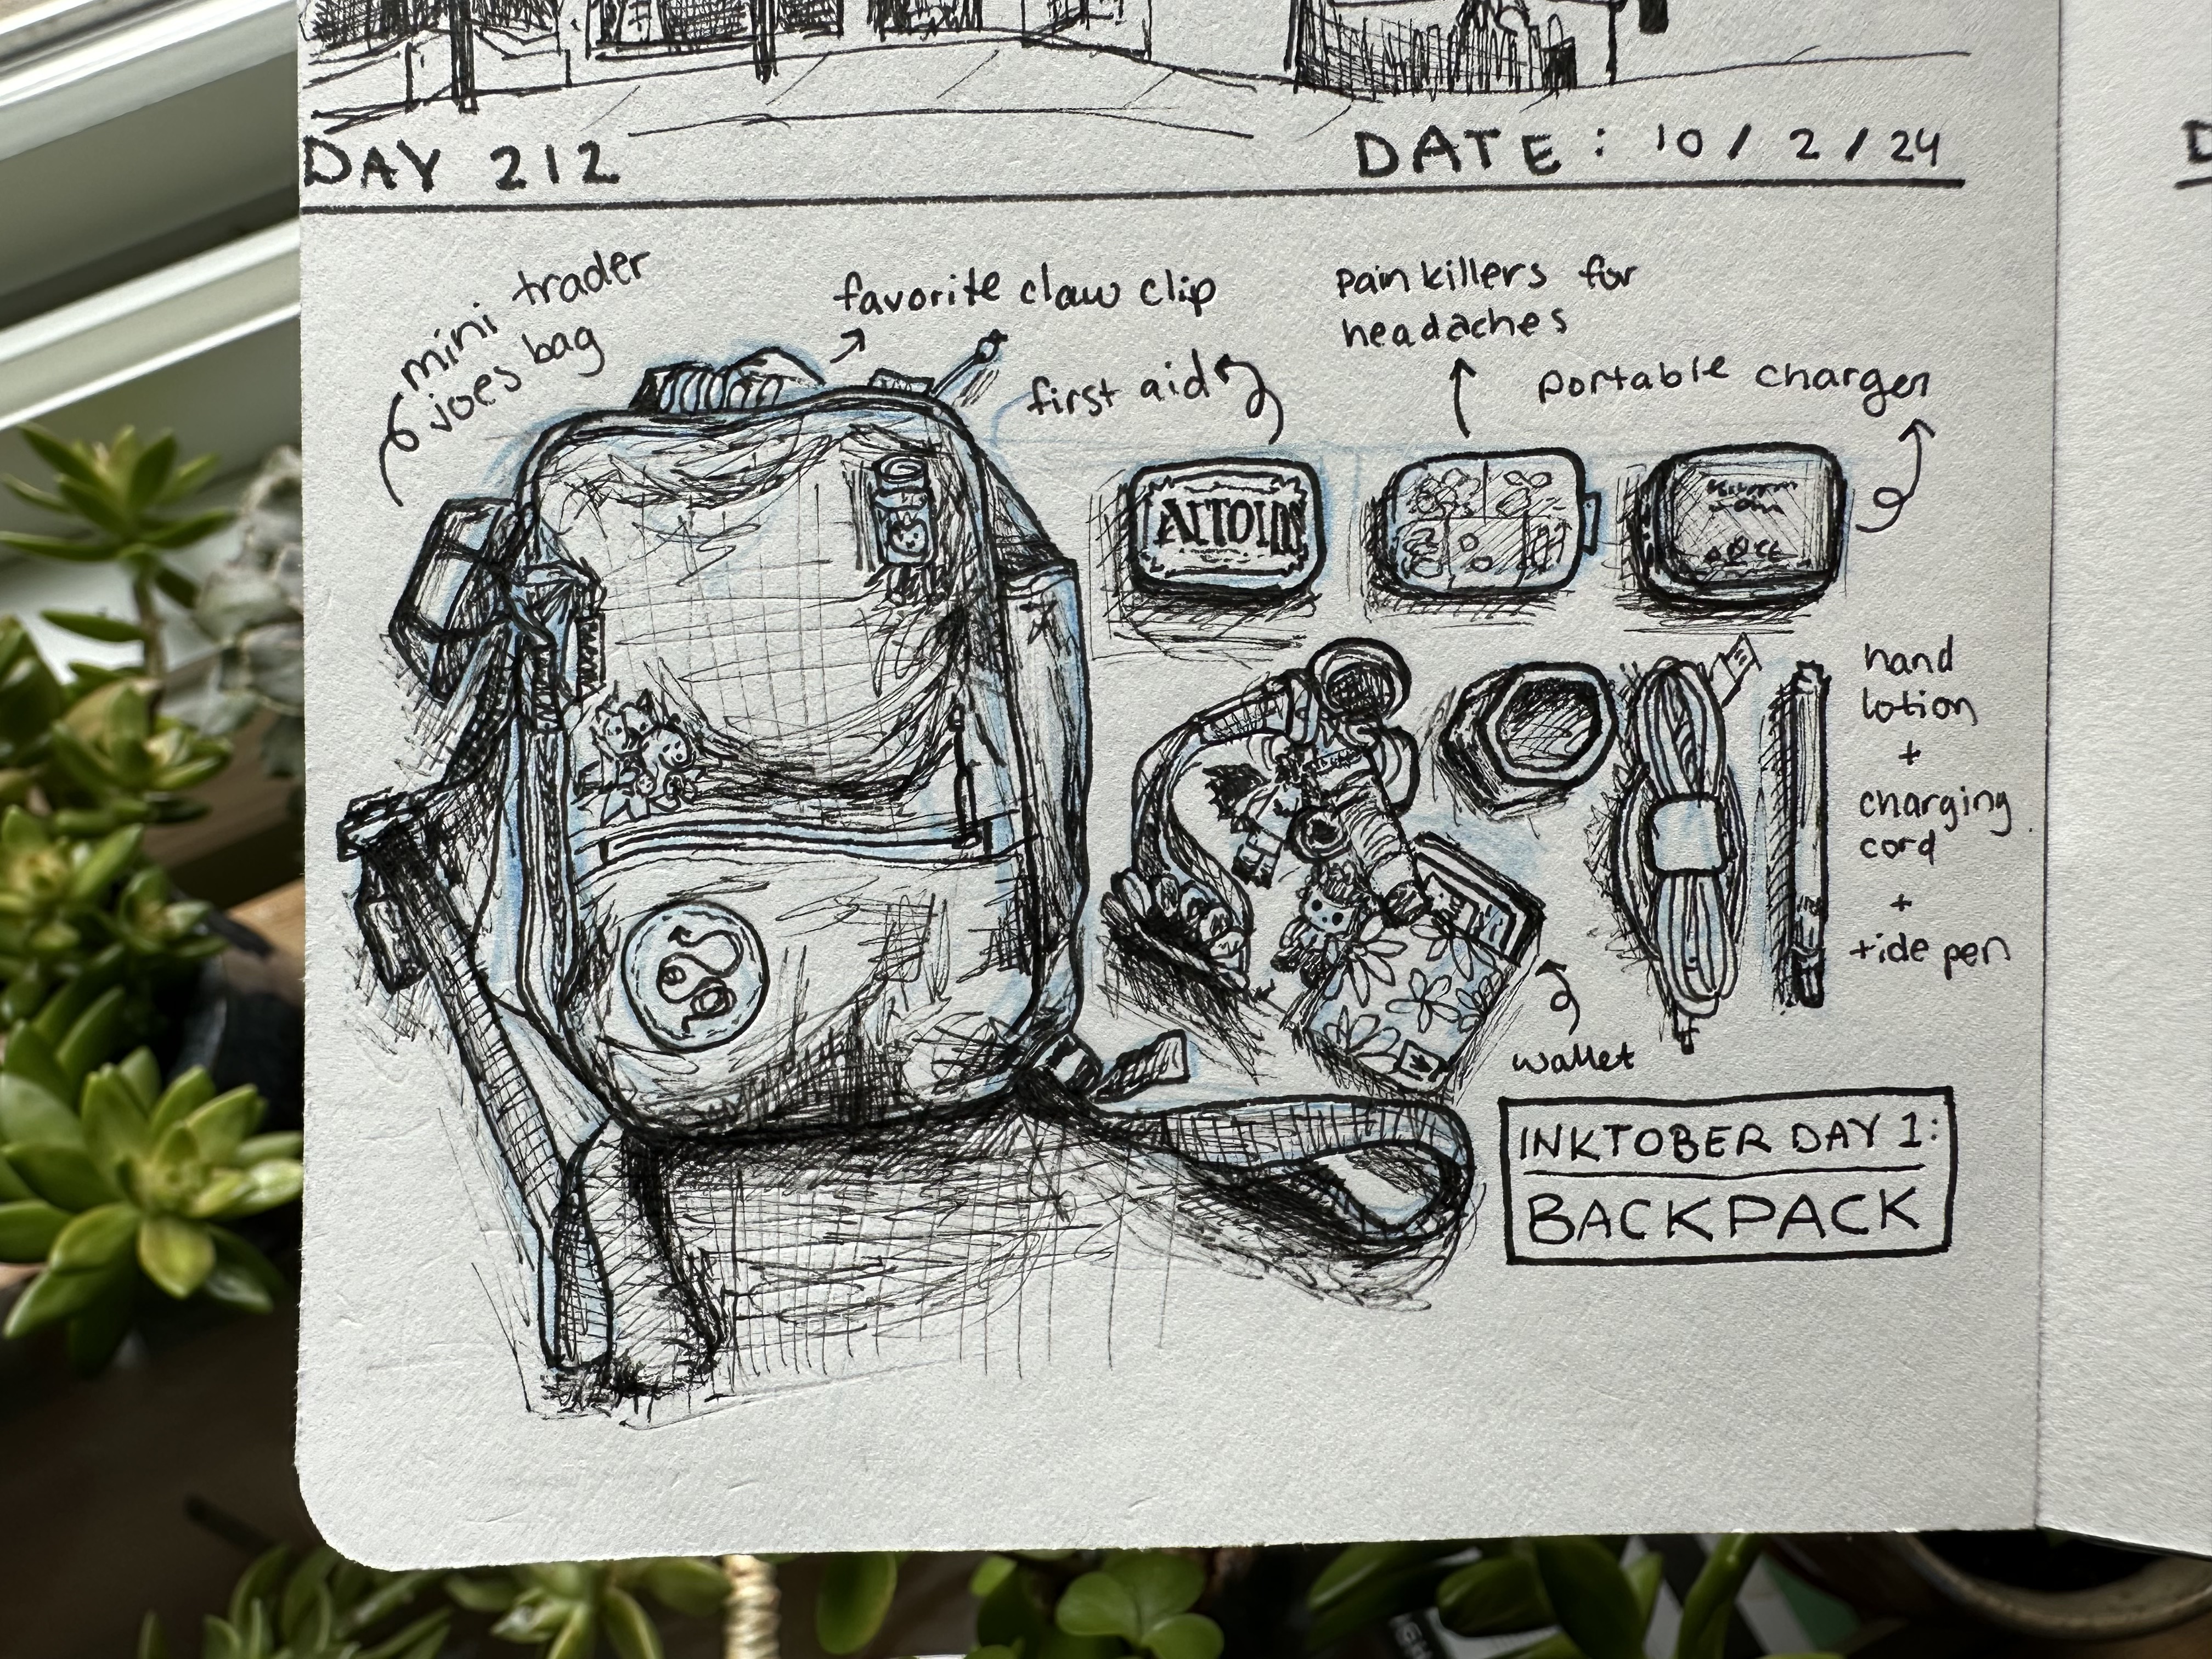 DAY 212
DATE: 10/2/24
mini trader
joes bag
favorite claw clip
first aid
pain killers for
headaches
portable charger
ALTOIDS
hand
lotion
+
charging
cord
+
tide pen
wallet
INKTOBER DAY 1:
BACKPACK